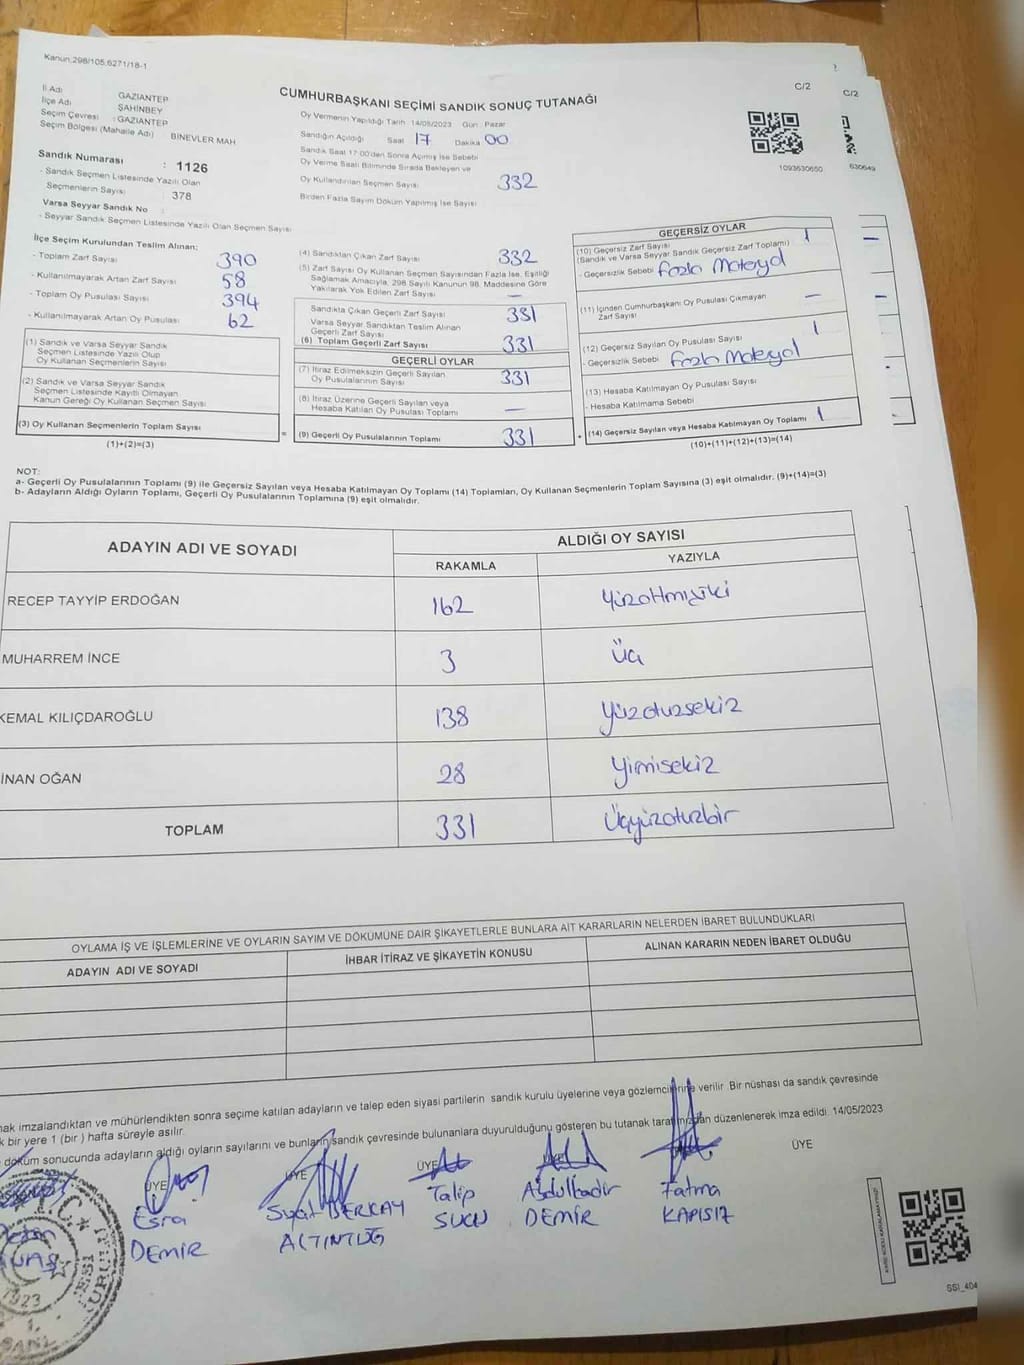 Kanun:298/105,6271/18-1
CUMHURBAŞKANI SEÇİMİ SANDIK SONUÇ TUTANAĞI
C/2
C/2
İl Adı GAZİANTEP
İlçe Adı ŞAHİNBEY
Seçim Çevresi : GAZİANTEP
Seçim Bölgesi (Mahalle Adı) BİNEVLER MAH
Sandık Numarası : 1126
- Sandık Seçmen Listesinde Yazılı Olan
Seçmenlerin Sayısı : 378
Varsa Seyyar Sandık No :
- Seyyar Sandık Seçmen Listesinde Yazılı Olan Seçmen Sayısı
Oy Vermenin Yapıldığı Tarih 14/05/2023 Gün : Pazar
Sandığın Açıldığı Saat 17 Dakika 00
Sandık Saat 17:00'den Sonra Açılmış İse Sebebi
Oy Verme Saati Bitiminde Sırada Bekleyen ve
Oy Kullandırılan Seçmen Sayısı 332
Birden Fazla Sayım Döküm Yapılmış İse Sayısı
1093630650
630649
İlçe Seçim Kurulundan Teslim Alınan;
- Toplam Zarf Sayısı 390
- Kullanılmayarak Artan Zarf Sayısı 58
- Toplam Oy Pusulası Sayısı 394
- Kullanılmayarak Artan Oy Pusulası 62
(1) Sandık ve Varsa Seyyar Sandık
Seçmen Listesinde Yazılı Olup
Oy Kullanan Seçmenlerin Sayısı
(2) Sandık ve Varsa Seyyar Sandık
Seçmen Listesinde Kayıtlı Olmayan
Kanun Gereği Oy Kullanan Seçmen Sayısı
(3) Oy Kullanan Seçmenlerin Toplam Sayısı
(1)+(2)=(3)
(4) Sandıktan Çıkan Zarf Sayısı 332
(5) Zarf Sayısı Oy Kullanan Seçmen Sayısından Fazla İse, Eşitliği
Sağlamak Amacıyla, 298 Sayılı Kanunun 98. Maddesine Göre
Yakılarak Yok Edilen Zarf Sayısı —
Sandıkta Çıkan Geçerli Zarf Sayısı 331
Varsa Seyyar Sandıktan Teslim Alınan
Geçerli Zarf Sayısı
(6) Toplam Geçerli Zarf Sayısı 331
GEÇERLİ OYLAR
(7) İtiraz Edilmeksizin Geçerli Sayılan
Oy Pusulalarının Sayısı 331
(8) İtiraz Üzerine Geçerli Sayılan veya
Hesaba Katılan Oy Pusulası Toplamı —
= (9) Geçerli Oy Pusulalarının Toplamı 331 +
GEÇERSİZ OYLAR
(10) Geçersiz Zarf Sayısı 1
(Sandık ve Varsa Seyyar Sandık Geçersiz Zarf Toplamı)
- Geçersizlik Sebebi Fazla Materyal
(11) İçinden Cumhurbaşkanı Oy Pusulası Çıkmayan
Zarf Sayısı —
(12) Geçersiz Sayılan Oy Pusulası Sayısı 1
- Geçersizlik Sebebi Fazla Materyal
(13) Hesaba Katılmayan Oy Pusulası Sayısı
- Hesaba Katılmama Sebebi
(14) Geçersiz Sayılan veya Hesaba Katılmayan Oy Toplamı 1
(10)+(11)+(12)+(13)=(14)
NOT:
a- Geçerli Oy Pusulalarının Toplamı (9) ile Geçersiz Sayılan veya Hesaba Katılmayan Oy Toplamı (14) Toplamları, Oy Kullanan Seçmenlerin Toplam Sayısına (3) eşit olmalıdır. (9)+(14)=(3)
b- Adayların Aldığı Oyların Toplamı, Geçerli Oy Pusulalarının Toplamına (9) eşit olmalıdır.
ADAYIN ADI VE SOYADI
ALDIĞI OY SAYISI
RAKAMLA YAZIYLA
RECEP TAYYİP ERDOĞAN 162 Yüzatmışiki
MUHARREM İNCE 3 Üç
KEMAL KILIÇDAROĞLU 138 Yüzotuzsekiz
İNAN OĞAN 28 Yirmisekiz
TOPLAM 331 Üçyüzotuzbir
OYLAMA İŞ VE İŞLEMLERİNE VE OYLARIN SAYIM VE DÖKÜMÜNE DAİR ŞİKAYETLERLE BUNLARA AİT KARARLARIN NELERDEN İBARET BULUNDUKLARI
ADAYIN ADI VE SOYADI İHBAR İTİRAZ VE ŞİKAYETİN KONUSU ALINAN KARARIN NEDEN İBARET OLDUĞU
nak imzalandıktan ve mühürlendikten sonra seçime katılan adayların ve talep eden siyasi partilerin sandık kurulu üyelerine veya gözlemcilerine verilir. Bir nüshası da sandık çevresinde
k bir yere 1 (bir ) hafta süreyle asılır.
döküm sonucunda adayların aldığı oyların sayılarını ve bunların sandık çevresinde bulunanlara duyurulduğunu gösteren bu tutanak tarafımızdan düzenlenerek imza edildi. 14/05/2023
ÜYE ÜYE ÜYE ÜYE
Esra DEMİR
Suat BERKAY ALTINTUĞ
Talip SUCU
Abdulkadir DEMİR
Fatma KAPISIZ
T.C.
1923